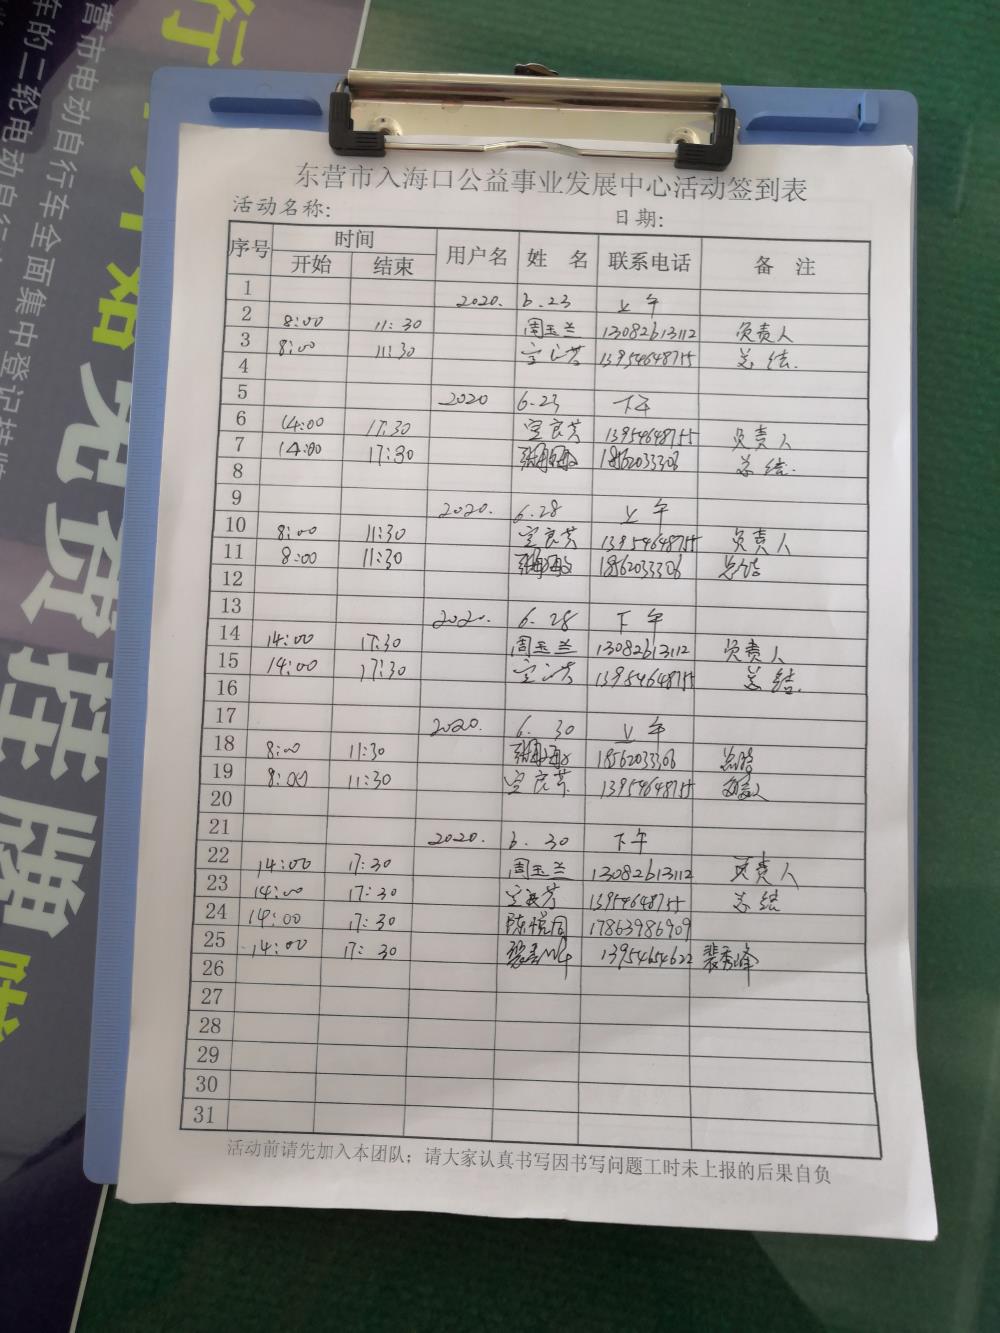 东营市入海口公益事业发展中心活动签到表
活动名称: 日期:
序号 时间 用户名 姓 名 联系电话 备 注
开始 结束
1 2020. 6.23 上午
2 8:00 11:30 周玉兰 13082613112 负责人
3 8:00 11:30 13954648755 总结.
4
5 2020 6.23 下午
6 14:00 17:30 宝良芳 13954648755 负责人
7 14:00 17:30 18562033306 总结.
8
9 2020. 6.28 上午
10 8:00 11:30 宝良芳 13954648755 负责人
11 8:00 11:30 18562033306 总结
12
13 2020. 6.28 下午
14 14:00 17:30 周玉兰 13082613112 负责人
15 14:00 17:30 13954648755 总结.
16
17 2020. 6.30 上午
18 8:00 11:30 18562033306 总结
19 8:00 11:30 宝良芳 13954648755 负责人
20
21 2020. 6.30 下午
22 14:00 17:30 周玉兰 13082613112 负责人
23 14:00 17:30 13954648755 总结
24 14:00 17:30 陈悦周 17863986909
25 14:00 17:30 13954654622 裴秀峰
26
27
28
29
30
31
活动前请先加入本团队；请大家认真书写因书写问题工时未上报的后果自负
行
开始免费挂牌啦
营市电动自行车全面集中登记挂牌